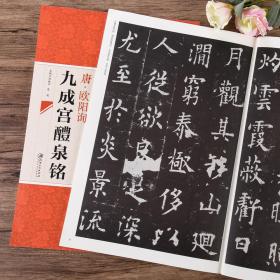 唐·欧阳询
九成宫醴泉铭
霞蔽虧日
月觀其移山迴
澗窮泰極侈以
人從欲良足深
尤至於炎景流